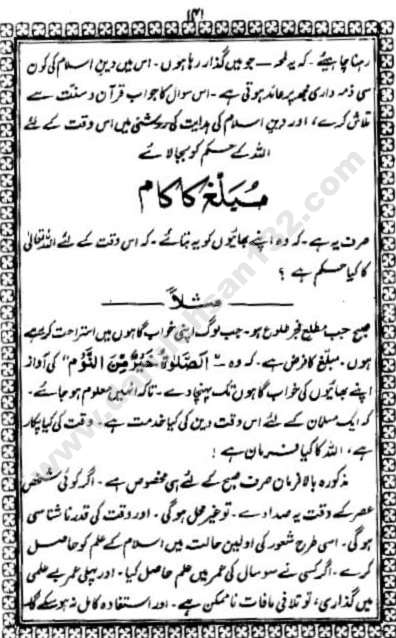 ۱۴۱
رہنا چاہیئے ۔ کہ یہ لمحہ ـــ جو میں گذار رہا ہوں ۔ اس میں دینِ اسلام کی کون
سی ذمہ داری مجھ پر عائد ہوتی ہے ۔ اس سوال کا جواب قرآن و سنت سے
تلاش کرے ، اور دینِ اسلام کی ہدایت کی روشنی میں اس وقت کے لئے
اللہ کے حکم کو بجا لائے
مبلغ کا کام
صرف یہ ہے ۔ کہ وہ اپنے بھائیوں کو یہ بتائے ۔ کہ اس وقت کے لئے اللہ تعالیٰ
کا کیا حکم ہے ؟
مثلاً
صبح جب مطلع فجر طلوع ہو ۔ جب لوگ اپنی خواب گاہوں میں استراحت کر رہے
ہوں ۔ مبلغ کا فرض ہے ۔ کہ وہ " اَلصَّلٰوۃُ خَیْرٌ مِّنَ النَّوْمِ " کی آواز
اپنے بھائیوں کی خواب گاہوں تک پہنچا دے ۔ تاکہ انہیں معلوم ہو جائے ۔
کہ ایک مسلمان کے لئے اس وقت دین کی کیا خدمت ہے ۔ وقت کی کیا پکار
ہے ، اللہ کا کیا فرمان ہے !
مذکورہ بالا فرمان صرف صبح کے لئے ہی مخصوص ہے ۔ اگر کوئی شخص
عصر کے وقت یہ صدا دے ۔ تو غیر محل ہوگی ۔ اور وقت کی قدر ناشناسی
ہوگی ۔ اسی طرح شعور کی اولین حالت میں اسلام کے علم کو حاصل
کرے ۔ اگر کسی نے سو سال کی عمر میں علم حاصل کیا ۔ اور پہلی عمر بے علمی
میں گذاری ، تو تلافی مافات ناممکن ہے ۔ اور استفادہ کامل نہ ہو سکے گا
www.danishsan132.com